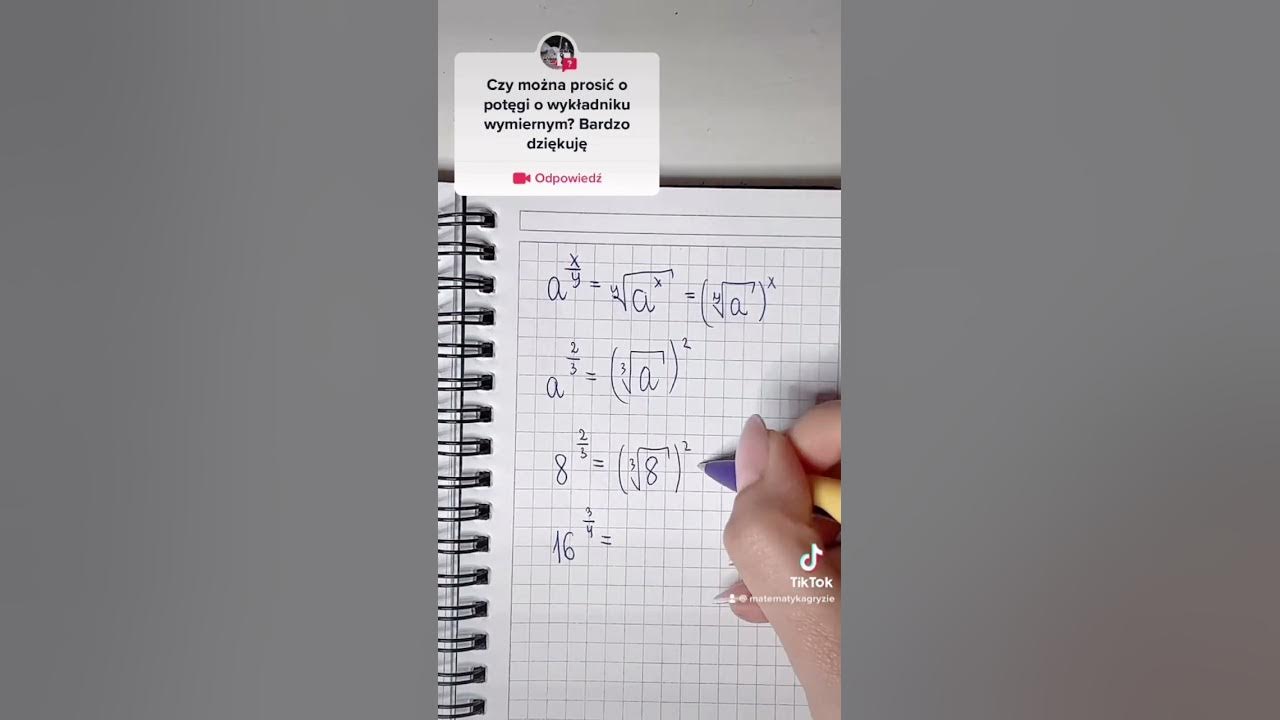 Czy można prosić o
potęgi o wykładniku
wymiernym? Bardzo
dziękuję
Odpowiedź
a^(x/y) = ʸ√(aˣ) = (ʸ√a)ˣ
a^(2/3) = (³√a)²
8^(2/3) = (³√8)²
16^(3/4) =
TikTok
matematykagryzie